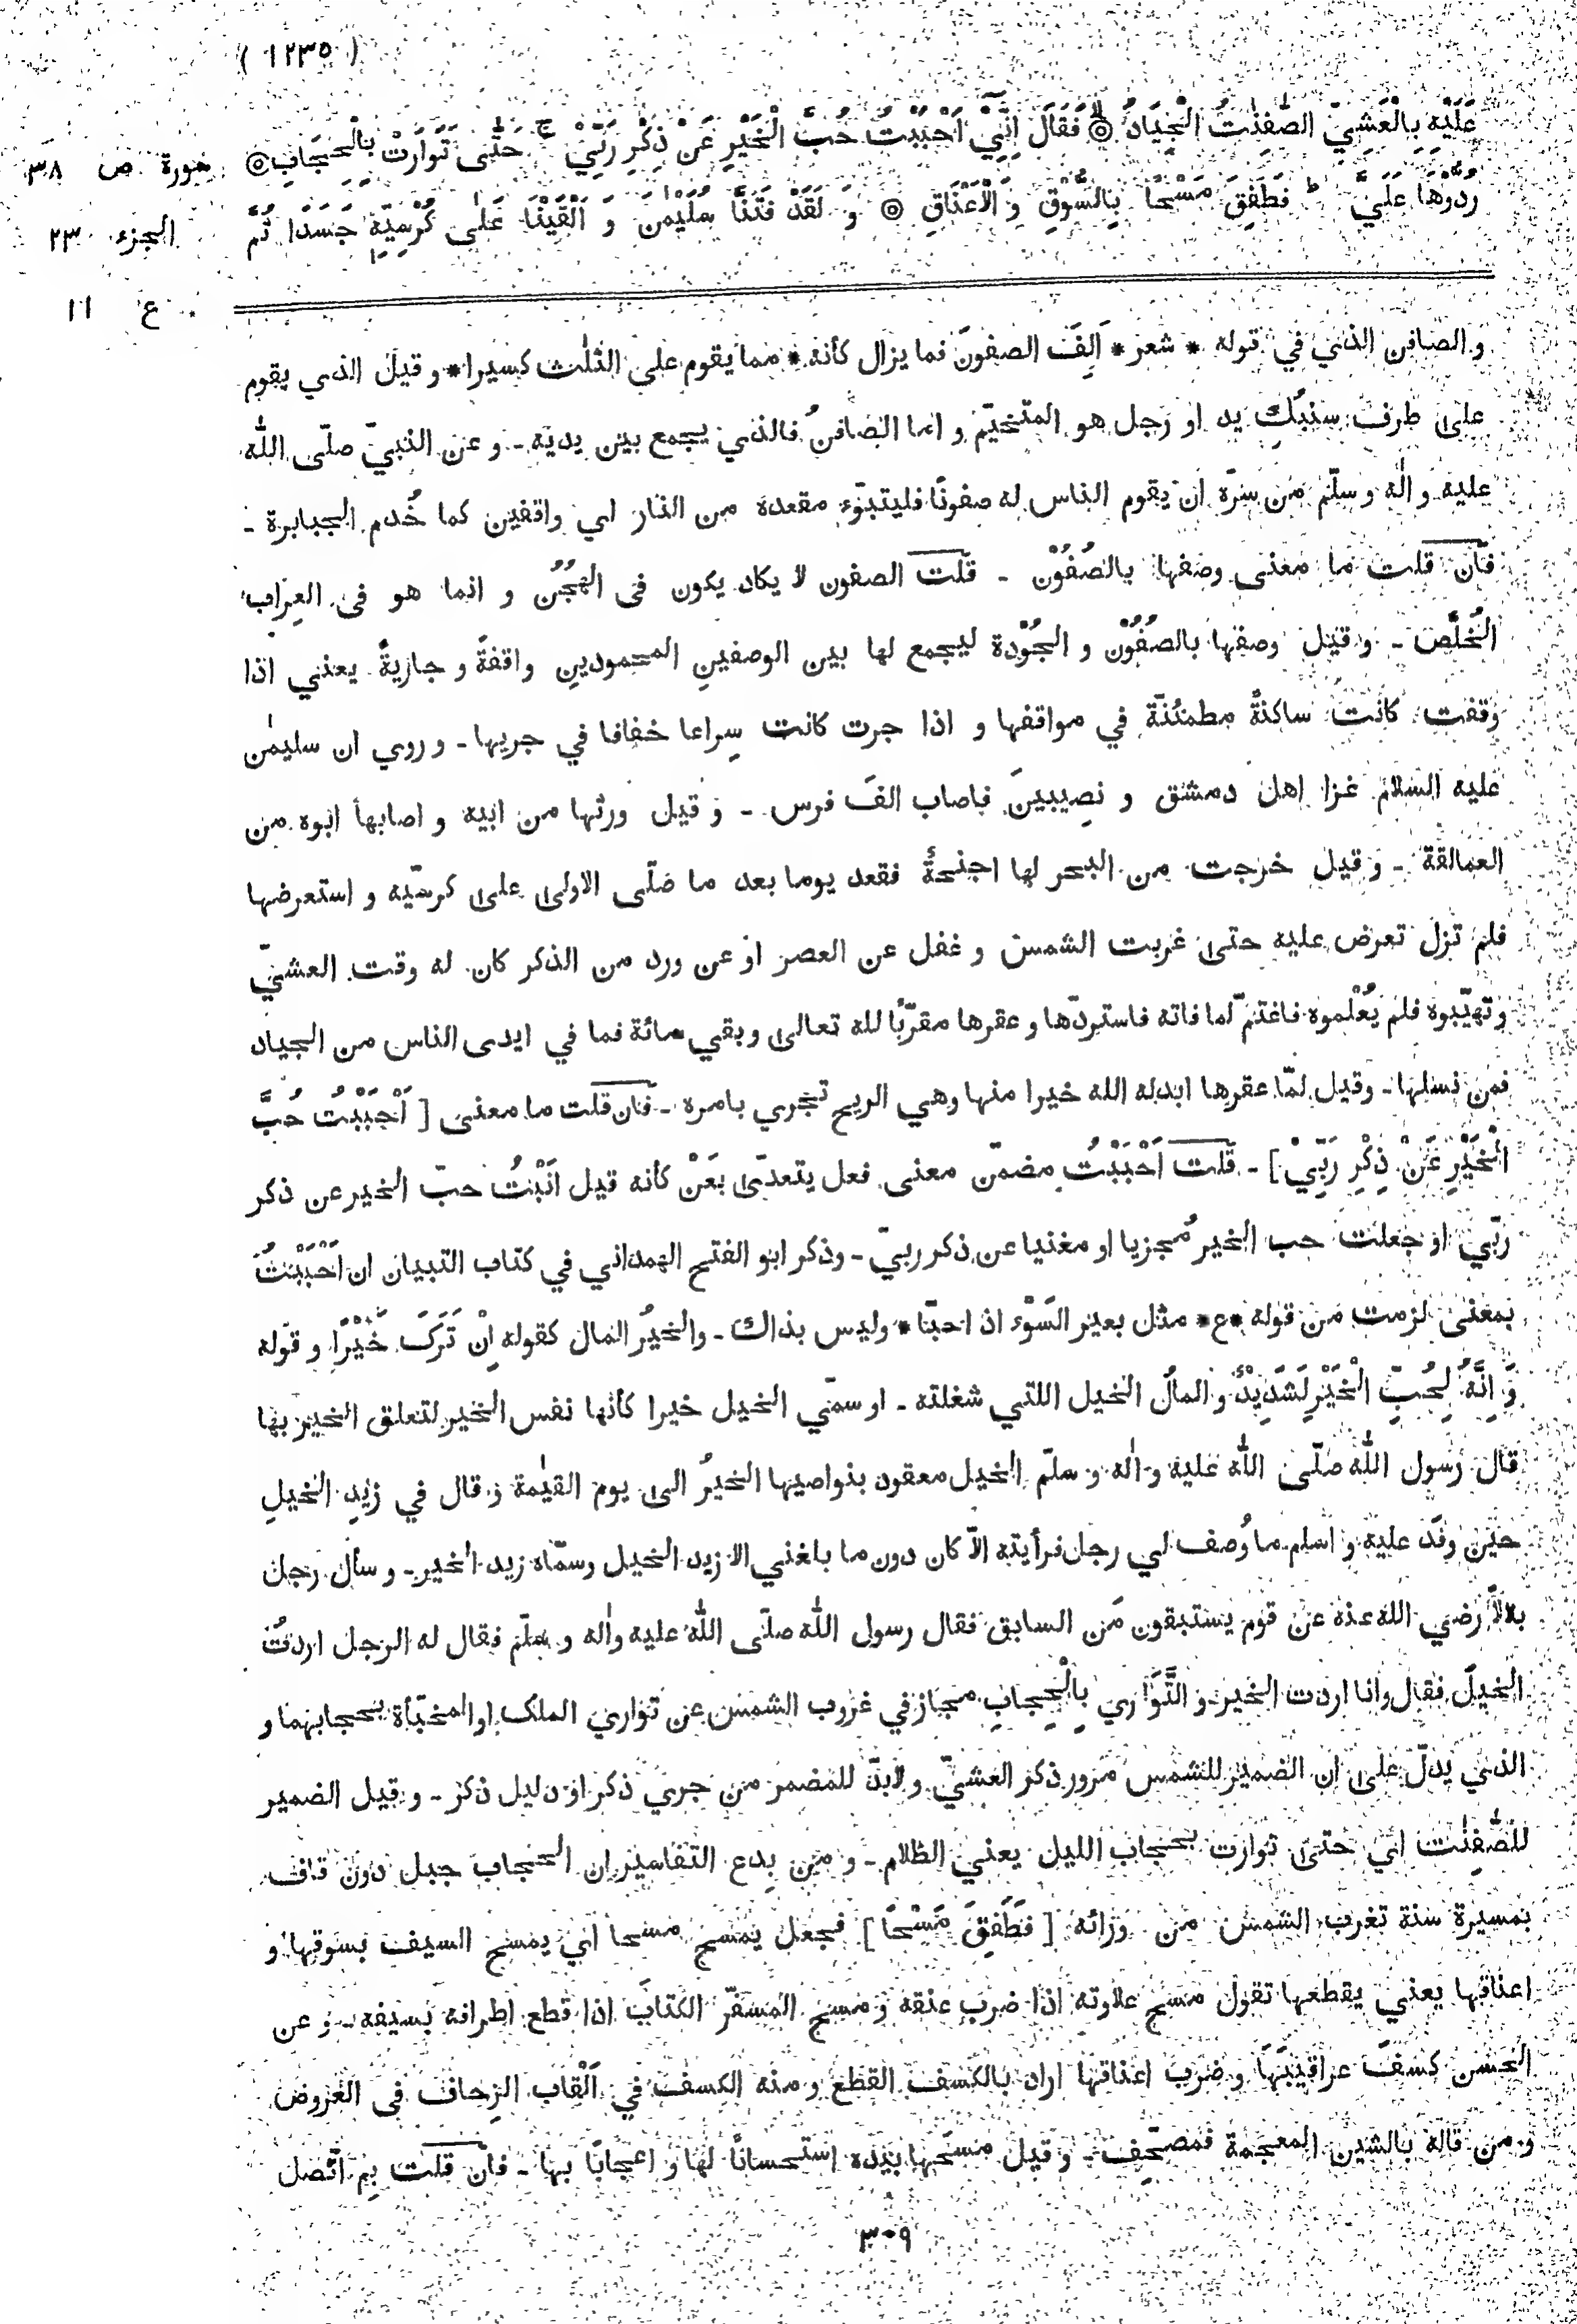 ( ١٢٣٥ )
عَلَيْهِ بِالْعَشِيِّ الصّٰفِنٰتُ الْجِيَادُ ۙ فَقَالَ اِنِّيْٓ اَحْبَبْتُ حُبَّ الْخَيْرِ عَنْ ذِكْرِ رَبِّيْ ج حَتّٰى تَوَارَتْ بِالْحِجَابِ ۝
سورة ص ٣٨
رُدُّوْهَا عَلَيَّ ط فَطَفِقَ مَسْحًا بِالسُّوْقِ وَ الْاَعْنَاقِ ۝ وَ لَقَدْ فَتَنَّا سُلَيْمٰنَ وَ اَلْقَيْنَا عَلٰى كُرْسِيِّهٖ جَسَدًا ثُمَّ
الجزء ٢٣
ع ١١
و الصافن الذي في قوله * شعر * اَلِفَ الصفونَ فما يزال كأنه * مما يقوم على الثلٰث كسيرا * و قيل الذي يقوم
على طرف سنبُكِ يد او رجل هو المتخيّم و اما الصافنُ فالذي يجمع بين يديه - و عن النبيّ صلّى اللّٰه
عليه و اٰله و سلّم من سرّه ان يقوم الناس له صفونًا فليتبوّء مقعده من النار اي واقفين كما خُدم الجبابرة -
فان قلت ما معنى وصفها بالصُفُوْن - قلت الصفون لا يكاد يكون في الهُجُن و انما هو في العِراب
الخُلَّص - و قيل وصفها بالصُفُوْن و الجُوْدة ليجمع لها بين الوصفينِ المحمودينِ واقفةً و جاريةً يعني اذا
وقفت كانت ساكنةً مطمئنّة في مواقفها و اذا جرت كانت سِراعا خفافا في جريها - و روي ان سليمٰن
عليه السلام غزا اهل دمشق و نصِيبينَ فاصاب الفَ فرس - و قيل ورثها من ابيه و اصابها ابوه من
العمالقة - و قيل خرجت من البحر لها اجنحةٌ فقعد يوما بعد ما صلّى الاولى على كرسيّه و استعرضها
فلم تزل تعرض عليه حتى غربت الشمس و غفل عن العصر او عن ورد من الذكر كان له وقت العشيّ
وتهيّبوه فلم يُعْلموه فاغتمّ لما فاته فاستردّها و عقرها مقرّبًا لله تعالى و بقي مائة فما في ايدى الناس من الجياد
فمن نسلها - وقيل لمّا عقرها ابدله الله خيرا منها وهي الريح تجري بامره - فان قلت ما معنى [ اَحْبَبْتُ حُبَّ
الْخَيْرِ عَنْ ذِكْرِ رَبِّيْ ] - قلت اَحْبَبْتُ مضمّن معنى فعل يتعدّى بعَنْ كأنه قيل اَنَبْتُ حبّ الخير عن ذكر
ربّي او جعلت حب الخير مُجزيا او مغنيا عن ذكر ربيّ - وذكر ابو الفتح الهمداني في كتاب التبيان ان اَحْبَبْتُ
بمعنى لزمت من قوله * ع * مثل بعير السَوْء اذ احبّا * وليس بذاك - والخيرُ المال كقوله اِنْ تَرَكَ خَيْرًا و قوله
وَ اِنَّهُ لِحُبِّ الْخَيْرِ لَشَدِيْدٌ و المالُ الخيل اللتي شغلته - او سمّي الخيل خيرا كأنها نفس الخير لتعلق الخير بها
قال رسول اللّٰه صلّى اللّٰه عليه و اٰله و سلّم الخيل معقون بنواصيها الخيرُ الى يوم القيٰمة و قال في زيدِ الخيلِ
حين وفد عليه و اسلم ما وُصف لي رجل فرأيته الّا كان دون ما بلغني الا زيد الخيل وسمّاه زيد الخير - و سأل رجل
بلالًا رضي الله عنه عن قوم يستبقون مَن السابق فقال رسول اللّٰه صلّى اللّٰه عليه واٰله و سلّم فقال له الرجل اردتُ
الخيل فقال وانا اردت الخير و التَّوَاري بِالْحِجَابِ مجاز في غروب الشمس عن تواري الملك او المخبّأة بحجابهما و
الذي يدلّ على ان الضمير للشمس مرور ذكر العشيّ و لابدّ للمضمر من جري ذكر او دليل ذكر - و قيل الضمير
للصّٰفِنٰت اي حتى توارت بحجاب الليل يعني الظلام - و من بِدع التفاسير ان الحجاب جبل دون قاف
بمسيرة سنة تغرب الشمس من ورائه [ فَطَفِقَ مَسْحًا ] فجعل يمسح مسحا اي يمسح السيف بسوقها و
اعناقها يعني يقطعها تقول مسح علاوته اذا ضرب عنقه و مسح المسفّر الكتاب اذا قطع اطرافه بسيفه - و عن
الحسن كسف عراقيبَها و ضرب اعناقها اراد بالكسف القطع و منه الكسف في اَلْقاب الزحاف فى العروض
و من قاله بالشين المعجمة فمصحّف - و قيل مسحها بيده استحسانًا لها و اعجابًا بها - فان قلت بِم اتّصل
٣٠٩